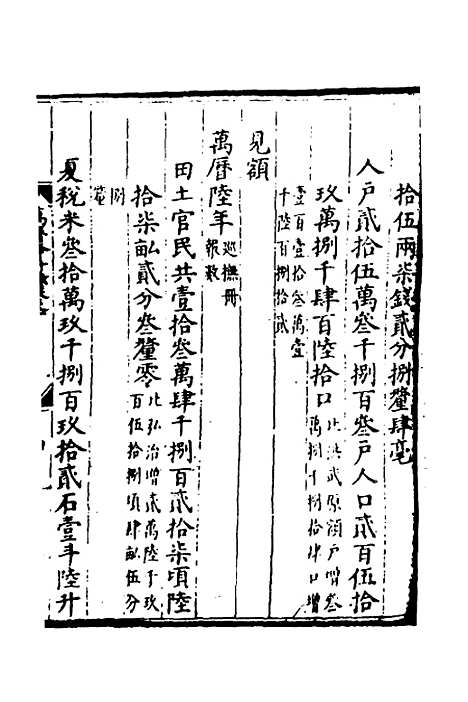 拾伍兩柒錢貳分捌釐肆毫
人戶貳拾伍萬叁千捌百叁戶人口貳百伍拾
玖萬捌千肆百陸拾口比洪武原額戶增叁
萬捌千捌拾肆口增
壹百壹拾叁萬壹
千陸百捌拾貳
見額
萬曆陸年巡撫冊
報數
田土官民共壹拾叁萬肆千捌百貳拾柒頃陸
拾柒畝貳分叁釐零比弘治增貳萬陸千玖
百伍拾捌頃肆畝伍分
捌
釐
夏稅米叁拾萬玖千捌百玖拾貳石壹斗陸升